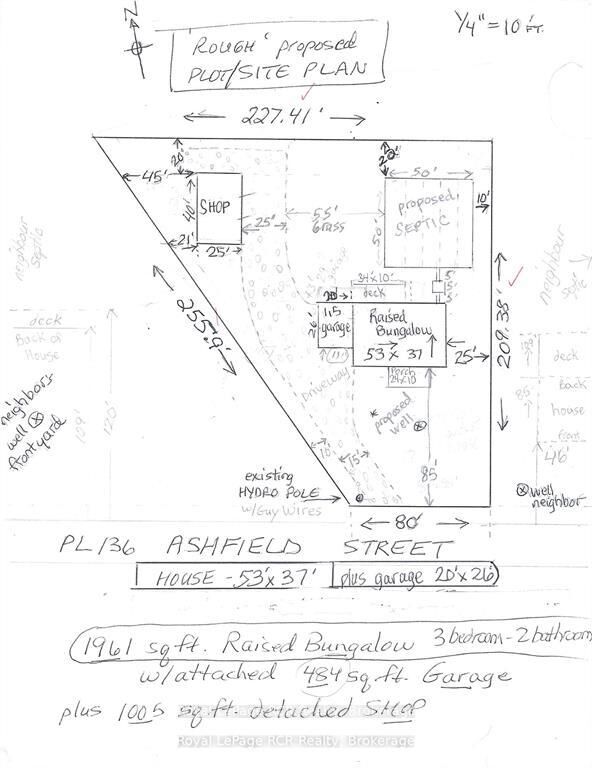 N
1/4" = 10 FT.
'ROUGH' proposed
PLOT/SITE PLAN
227.41'
20'
45'
40'
SHOP
25'
21'
25'
55'
Grass
50'
10'
proposed
SEPTIC
50'
neighbour
septic
neighbour
255.9'
209.38'
34x10'
deck
5'
5'
5'
26'
garage
Raised
Bungalow
53 x 37
25'
Porch
24x10
Driveway
* proposed
well
deck
Back of
House
109'
120'
neighbors
well
front yard
deck
Back
85'
house
front
46'
10'
15'
85'
existing
HYDRO POLE
w/Guy Wires
well
neighbor
80'
PL136 ASHFIELD STREET
HOUSE - 53'x 37' plus garage 20'x 26'
1961 sq ft. Raised Bungalow 3 bedroom - 2 bathroom
w/attached 484 sq ft. Garage
plus 1005 sq ft. detached SHOP
Royal LePage RCR Realty, Brokerage